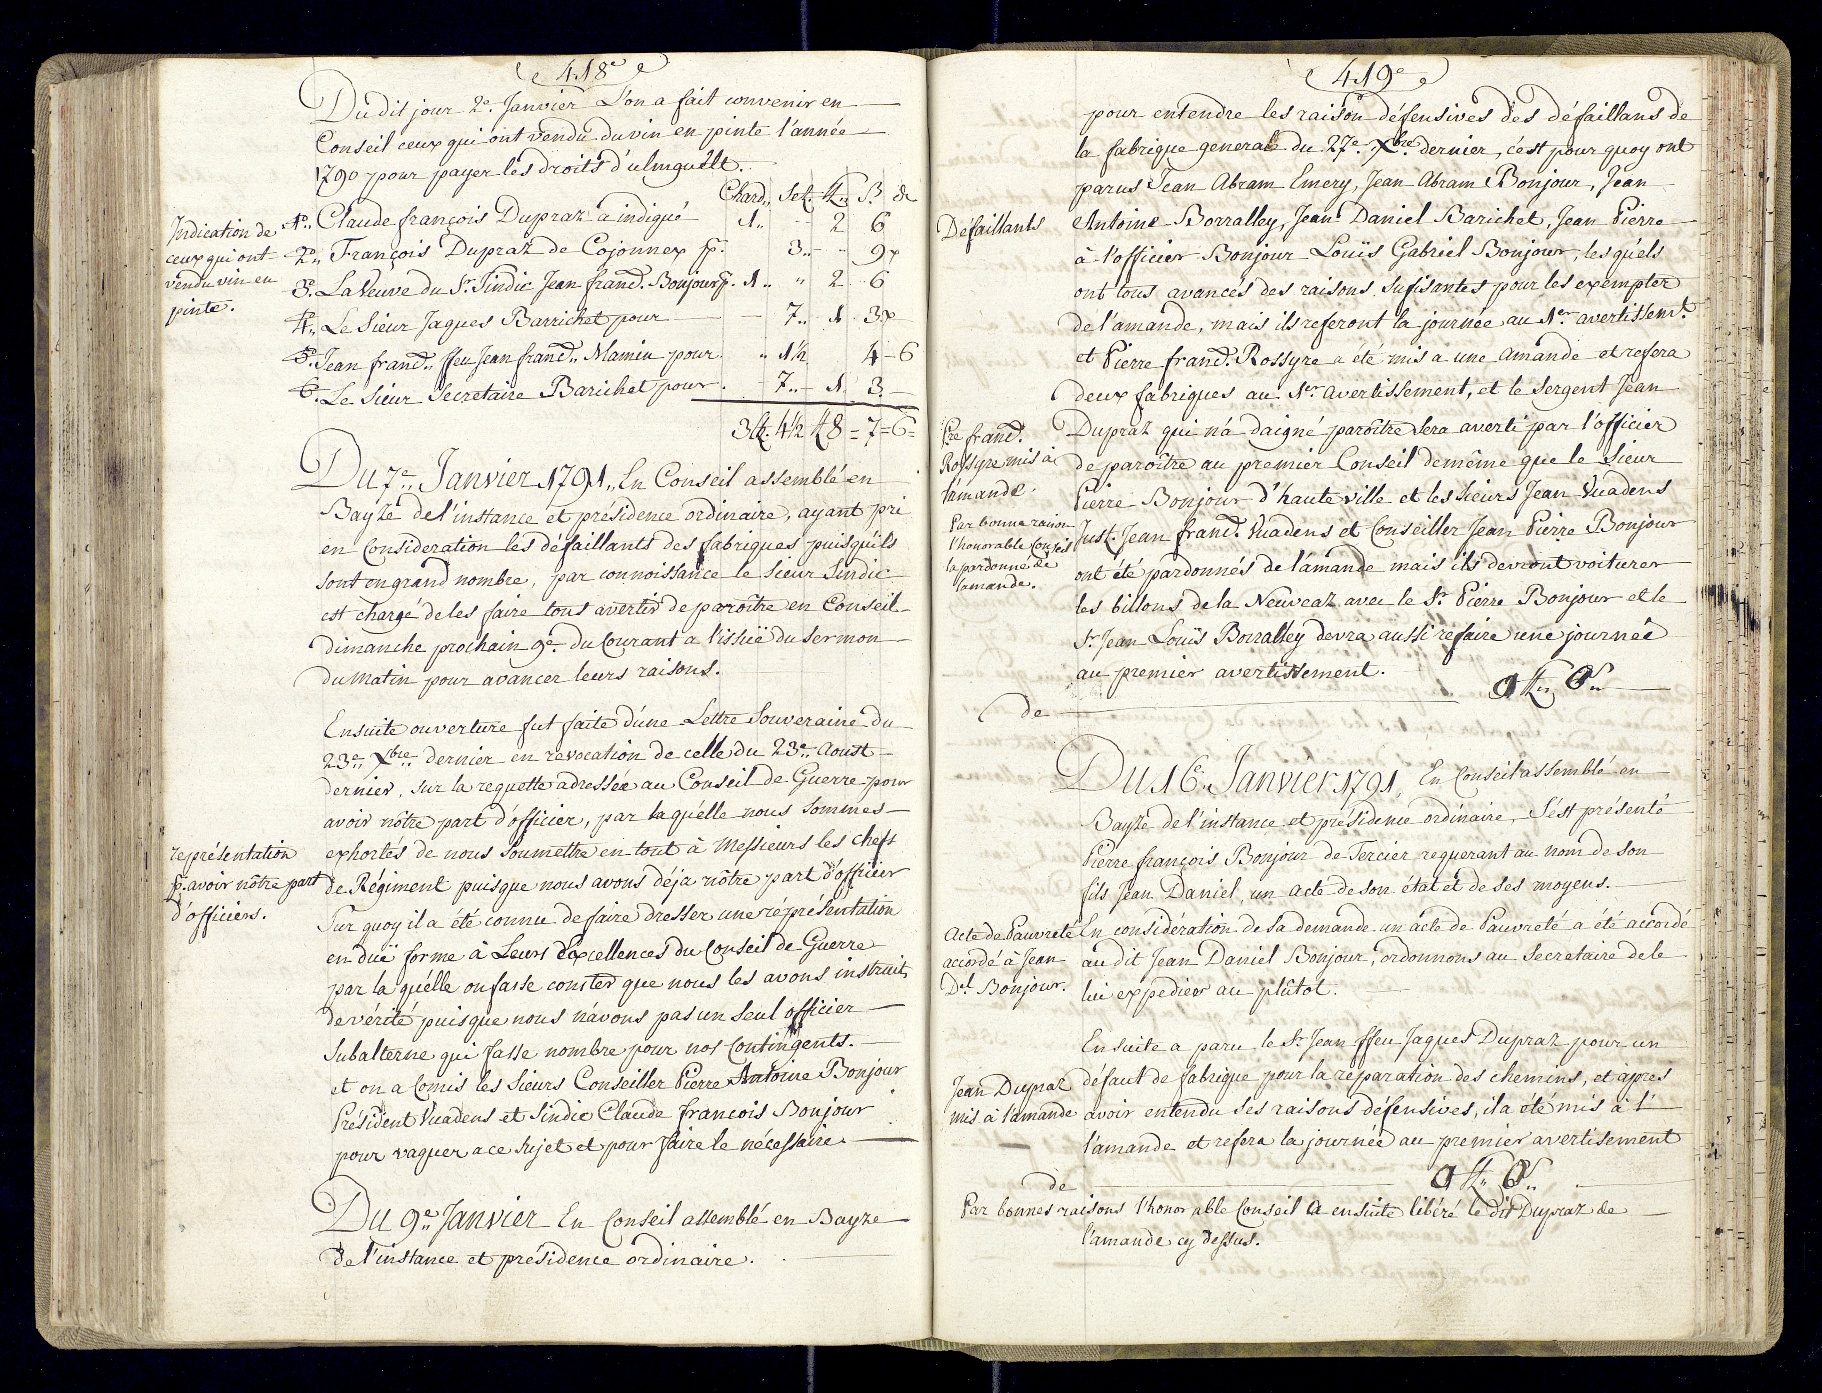 418e
Du dit jour 2e. Janvier L'on a fait convenir en
Conseil ceux qui ont vendu du vin en pinte l'année
1790 pour payer les droits d'ulmguêlt.
Chard,, Set. ₶.. ß dr
Indication de
ceux qui ont
vendu vin en
pinte.
1o.. Claude françois Dupraz a indiqué 1.. 2 6
2o.. François Dupraz de Cojonnex p. 3.. - .. 9x
3o. La Veuve du Sr. Sindic Jean frand. Bonjour p. 1 .. " 2 6
4o.. Le Sieur Jaques Barrichet pour 7.. 1 3x
5o. Jean frand.. ffeu Jean frand.. Mamin pour. " 1½ 4 - 6
6o. Le Sieur Secretaire Barichet pour. 7.. - 1. 3. -
3 4½ ₶ 8 = 7 = 6 =
Du 7e.. Janvier 1791,, En Conseil assemblé en
Bayzé de l'instance et présidence ordinaire, ayant pri
en Consideration les défaillants des fabriques puisqu'ils
sont en grand nombre, par connoissance le Sieur Sindic
est chargé de les faire tous avertir de paroître en Conseil
Dimanche prochain 9e. du Courant a l'issüe du Sermon
du Matin pour avancer leurs raisons.
Ensuite ouverture fut faite d'une Lettre Souveraine du
23e.. Xbre.. dernier en revocation de celle du 23e.. Aoust
dernier, sur la requette adressée au Conseil de Guerre pour
avoir nôtre part d'officier, par laquélle nous sommes
représentation
p. avoir nôtre part
d'officiers.
exhortés de nous soumettre en tout à Messieurs les Cheft
de Régiment puisque nous avons déja nôtre part d'officier
Sur quoy il a été connu de faire dresser une réprésentation
en düe forme à Leurs Excellences du Conseil de Guerre
par la quélle on fasse conster que nous les avons instruit,
de vérité puisque nous n'avons pas un seul officier
Subalterne qui fasse nombre pour nos Contingents.
et on a Comis les Sieurs Conseiller Pierre Antoine Bonjour
Président Vuadens et Sindic Claude françois Bonjour
pour vaquer a ce Sujet et pour faire le nécessaire.
Du 9e.. Janvier En Conseil assemblé en Bayze
de l'instance et présidence ordinaire.
419e
pour entendre les raison défensives des défaillans de
la fabrique generale du 27e. Xbre. dernier, c'est pour quoy ont
parus Jean Abram Emery, Jean Abram Bonjour, Jean
Défaillants
Antoine Borralley, Jean Daniel Barichet, Jean Pierre
à l'officier Bonjour Louïs Gabriel Bonjour, lesquels
ont tous avancés des raisons sufisantes pour les exempter
de l'amande, mais ils referont la journée au 1er. avertissemt.
et Pierre frand. Rossyre a été mis a une amande et refera
deux fabriques au 1er. avertissement, et le Sergent Jean
Pre frand.
Rossyre mis à
l'amande.
Dupraz qui n'a daigné paroître sera averti par l'officier
de paroître au premier Conseil demême que le Sieur
Pierre Bonjour d'haute ville et les Sieurs Jean Vuadens
Par bonne raison
l'honorable Conseil
la pardonné de
l'amande.
Just. Jean frand. Vuadens et Conseiller Jean Pierre Bonjour
ont été pardonnés de l'amande mais ils devront voiturer
les billons de la Neuveaz avec le Sr. Pierre Bonjour et le
Sr. Jean Louïs Borralley devra aussi refaire une journée
au premier avertissement.
de
Du 16e. Janvier 1791, En Conseil assemblé en
Bayze de l'instance et présidence ordinaire, S'est présenté
Pierre françois Bonjour de Tercier requerant au nom de son
fils Jean Daniel, un Acte de son état et de ses moyens.
Acte de Pauvreté
accordé à Jean
Dl. Bonjour.
En considération de sa demande un acte de Pauvreté a été accordé
au dit Jean Daniel Bonjour, ordonnons au Secretaire de le
lui expedier au plûtot.
Ensuite a paru le Sr Jean ffeu Jaques Dupraz pour un
Jean Dupraz
mis à l'amande
défaut de fabrique pour la réparation des chemins, et apres
avoir entendu ses raisons défensives, il a été mis à l'
l'amande et refera la journée au premier avertisement
de
Par bonnes raisons l'honorable Conseil a ensuite libéré le dit Dupraz de
l'amande cy dessus.